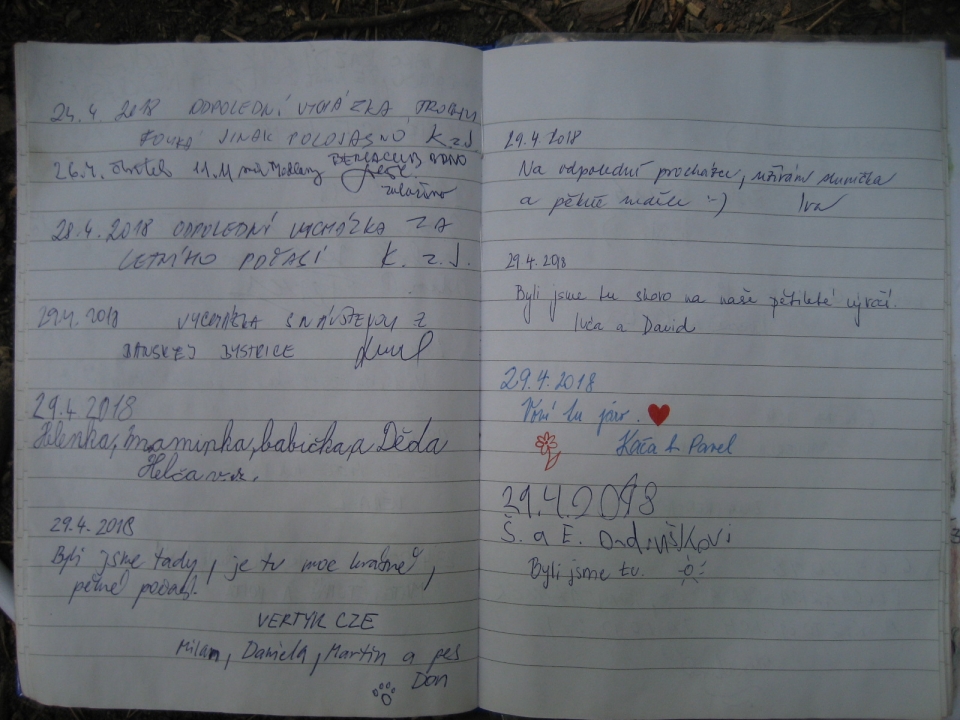 24.4. 2018 ODPOLEDNÍ VYCHÁZKA TROCHU
FOUKÁ JINAK POLOJASNO K. z J.
26.4. 11.11
28.4. 2018 ODPOLEDNÍ VYCHÁZKA ZA
LETNÍHO POČASÍ K. z. J.
29.4. 2018 VYCHÁZKA S NÁVŠTEVOU Z
BANSKEJ BYSTRICE
29.4.2018
Helenka, maminka, babička, a Děda
29.4.2018
Byli jsme tady, je tu moc krásně,
pěkné počasí.
VERTYK CZE
Milan, Daniela, Martin a pes
Don
29.4.2018
Na odpolední procházce, užívám sluníčka
a pěkné :-) Iva
29.4.2018
Byli jsme tu skoro na naše pětileté výročí.
Ivča a David
29.4.2018
Voní tu jaro.
Káča & Pavel
29.4.2018
Š. a E.
Byli jsme tu.